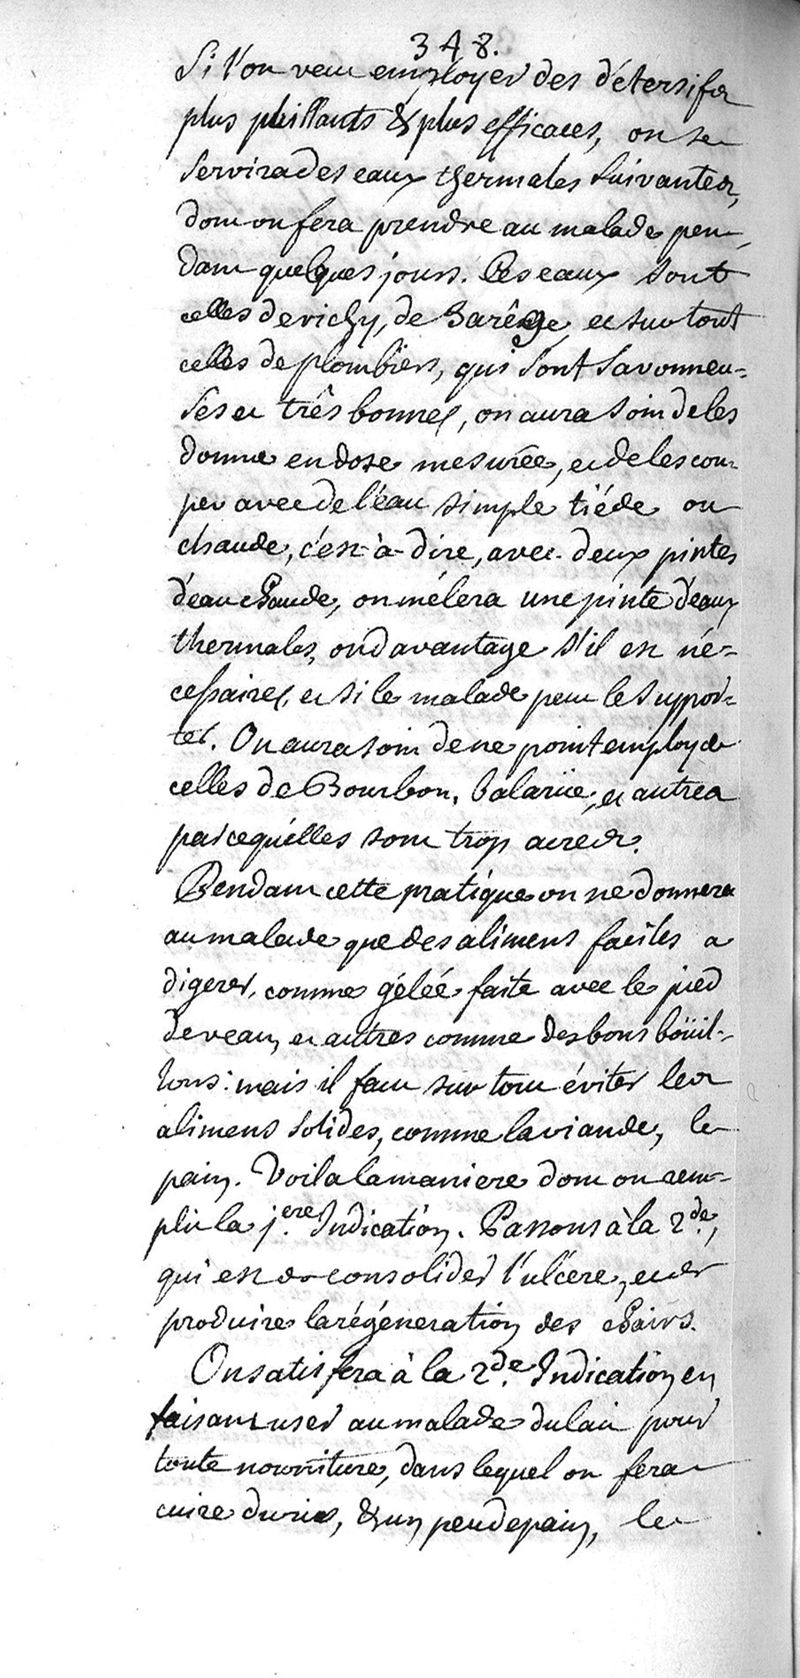 348.
Si l'on veut employer des détersifs
plus puissants & plus efficaces, on se
servira des eaux thermales suivantes,
dont on fera prendre au malade pen-
dant quelques jours. Ces eaux sont
celles de vichy, de Barêge, et sur tout
celles de plombiers, qui sont savonneu-
ses et três bonnes, on aura soin de les
donner en dose mesurée, et de les cou-
per avec de l'eau simple tiéde ou
chaude, c'est-à-dire, avec deux pintes
d'eau chaude, on mélera une pinte d'eaux
thermales, ou davantage s'il est né-
cessaires, et si le malade peut le suppor-
ter. On aura soin de ne point employer
celles de Bourbon, balarüe, et autres
parcequ'elles sont trop acres.
Pendant cette pratique on ne donnera
au malade que des alimens faciles a
digerer, comme gélée faite avec le pied
de veau, et autres comme des bons boüil-
lons: mais il faut sur tout éviter les
alimens solides, comme la viande, le
pain. Voila la maniere dont on rem-
plit la 1.ere Indication. Passons à la 2.de,
qui est de consolider l'ulcere, et de
produire la régéneration des chairs.
On satisfera à la 2.de Indication en
faisant user au malade du lait pour
toute nourriture, dans lequel on fera
cuire du ris, & un peu de pain, le